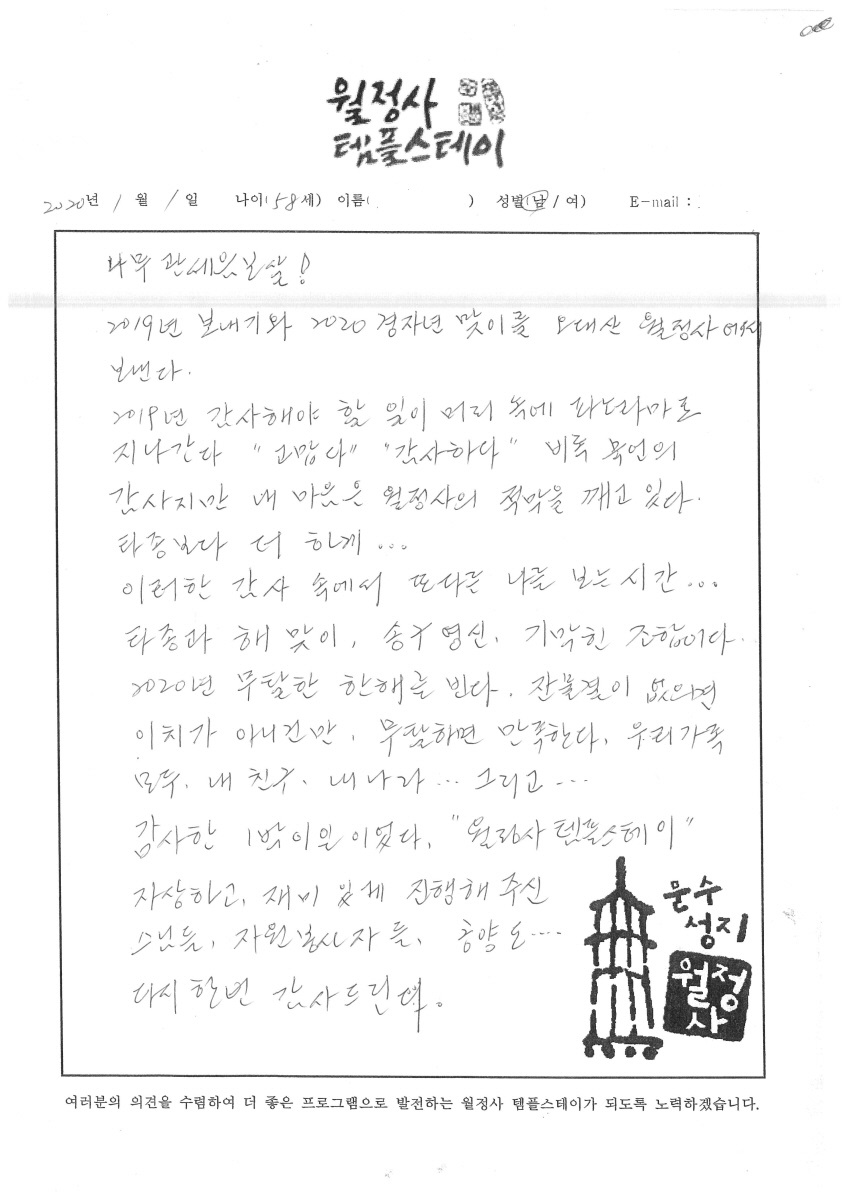 월정사
템플스테이
2020년 1월 1일 나이(58세) 이름( ) 성별(남/여) E-mail :
나무 관세음보살!
2019년 보내기와 2020 경자년 맞이를 오대산 월정사에서
보낸다.
2019년 감사해야 할 일이 머리 속에 파노라마로
지나간다 "고맙다" "감사하다" 비록 묵언의
감사지만 내 마음은 월정사의 적막을 깨고 있다.
타종보다 더 하게...
이러한 감사 속에서 또다른 나를 보는 시간...
타종과 해 맞이, 송구영신, 기막힌 조합이다.
2020년 무탈한 한해를 빈다. 잔물결이 없으면
이치가 아니건만, 무탈하면 만족한다, 우리가족
모두, 내 친구, 내나라... 그리고...
감사한 1박이일이었다, "월정사 템플스테이"
자상하고, 재미 있게 진행해 주신
스님들, 자원봉사자 들, 공양도....
다시 한번 감사드린다.
문수
성지
월정
사
여러분의 의견을 수렴하여 더 좋은 프로그램으로 발전하는 월정사 템플스테이가 되도록 노력하겠습니다.